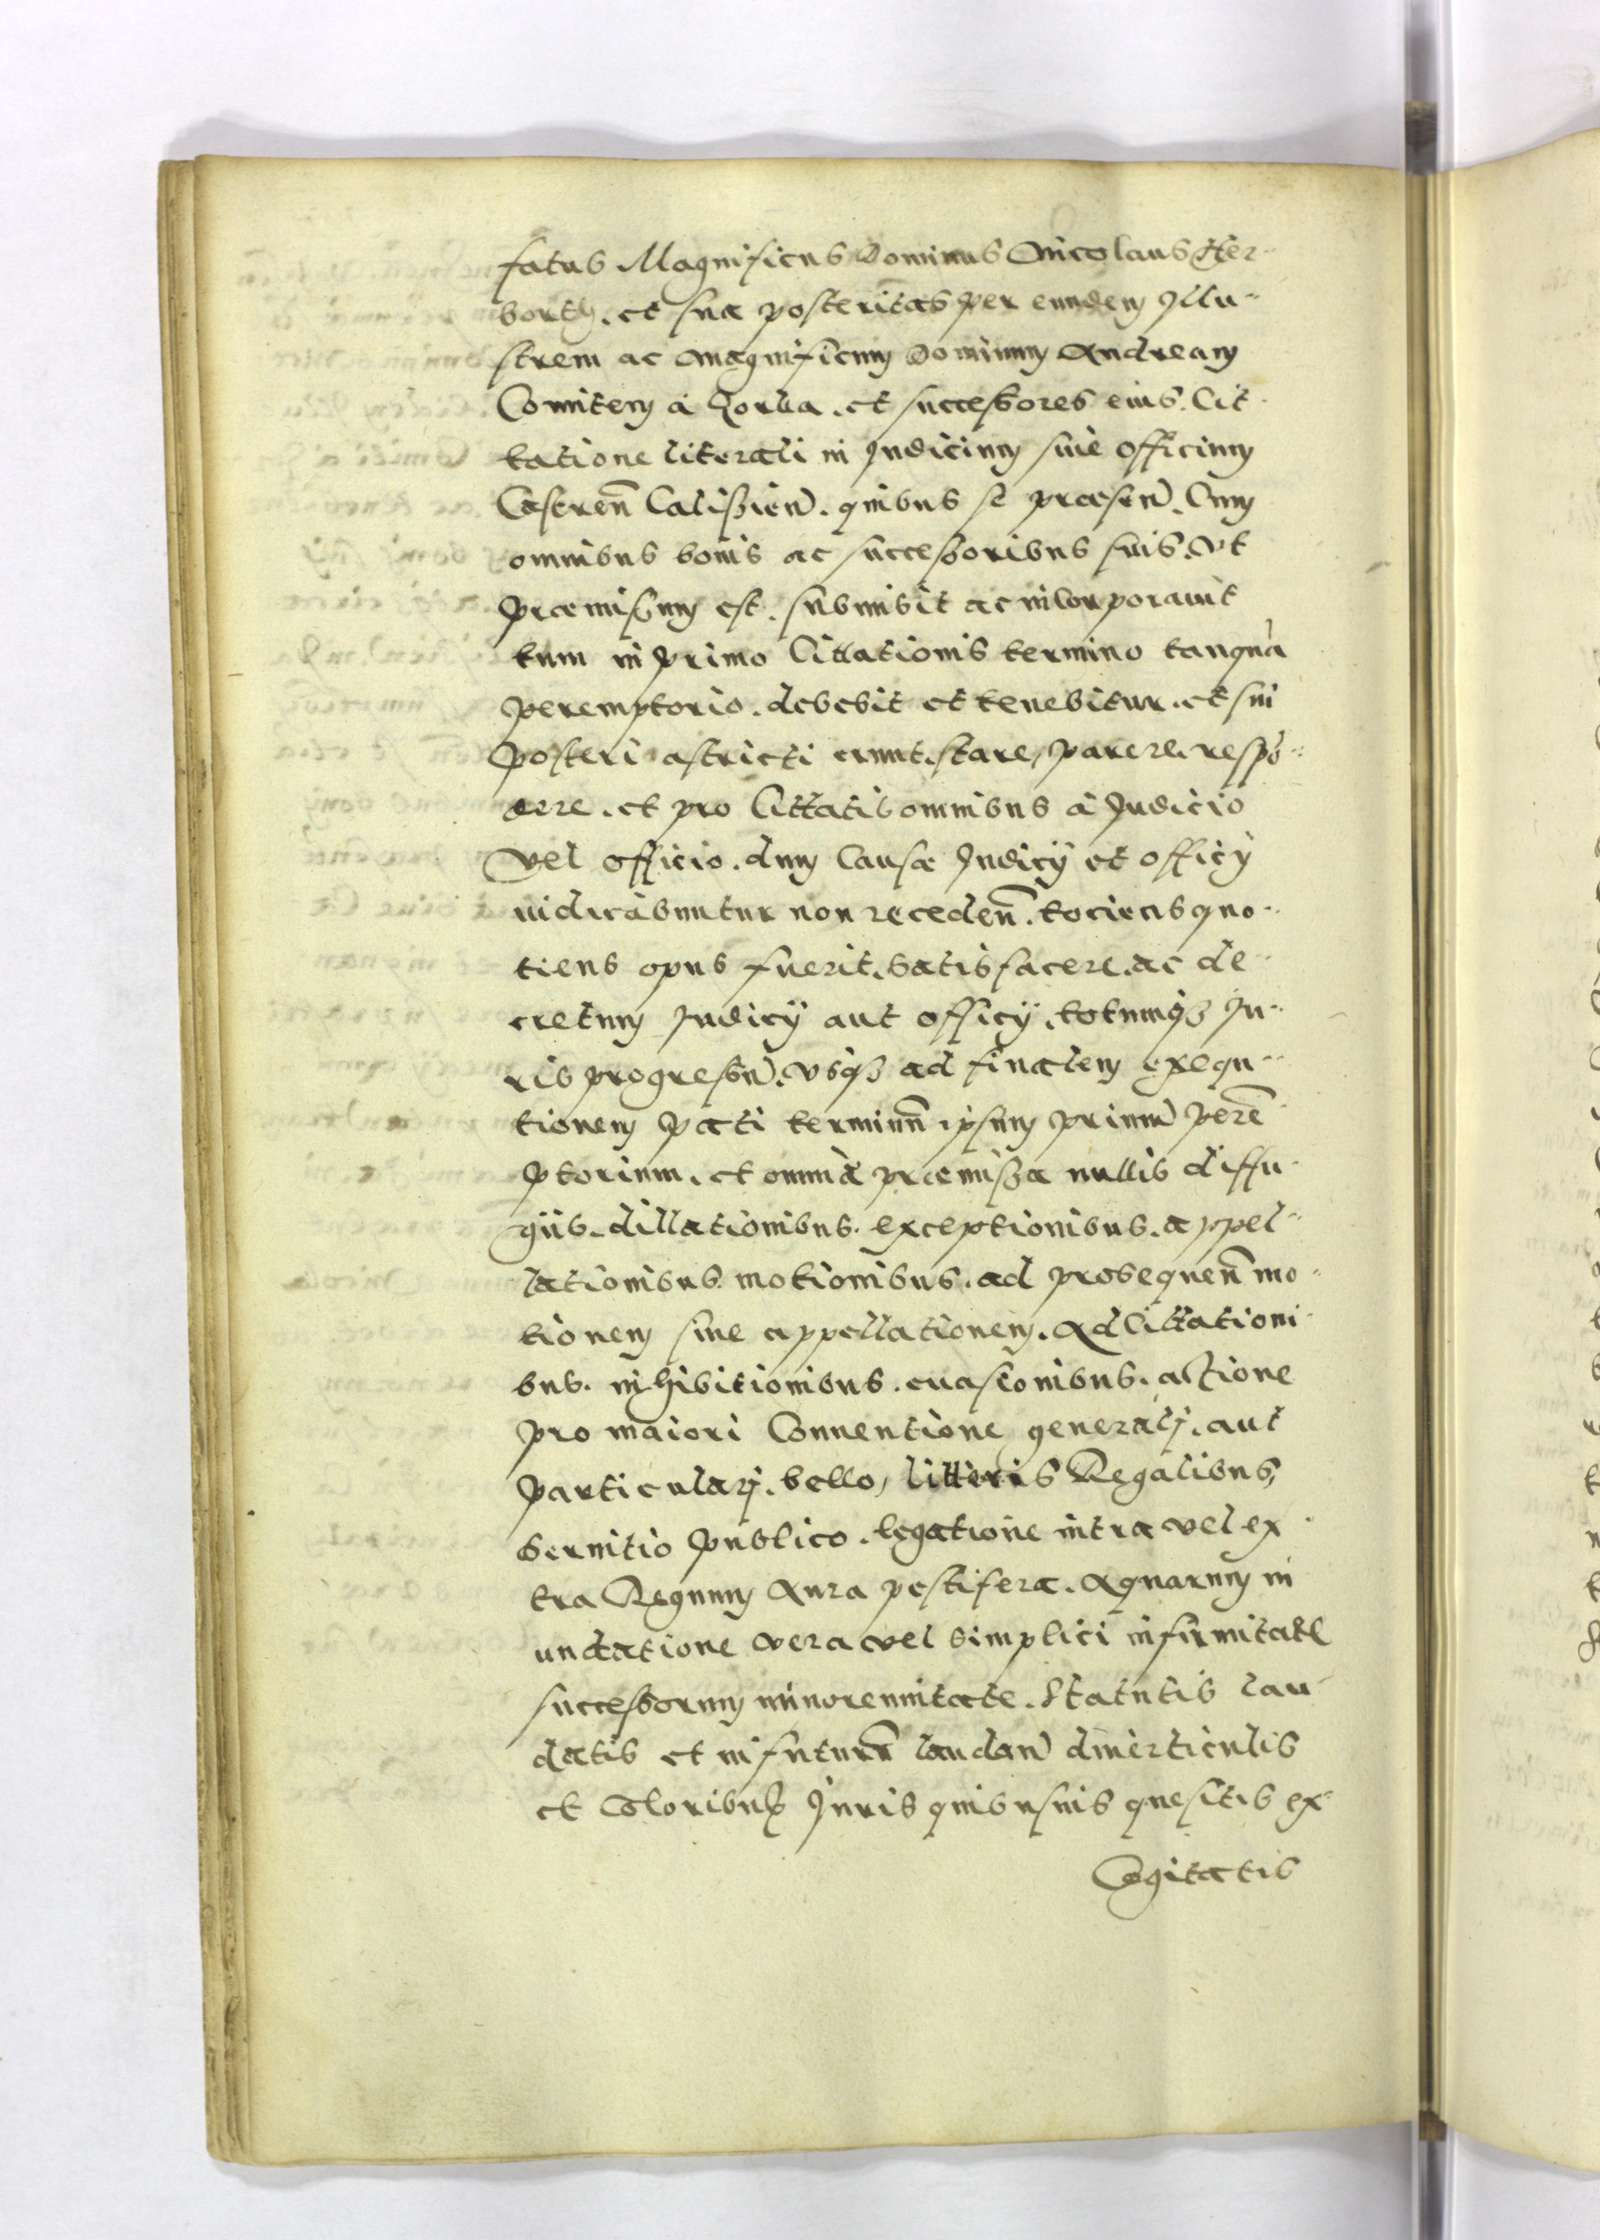 fatus Magnificus Dominus Nicolaus Her-
borth. et sua posteritas per eundem Illu-
strem ac Magnificum Dominum Andream
Comitem a Gorka. et successores eius. Cit-
tatione literali in Judicium siue officium
Castren Calissien. quibus se praesen. Cum
omnibus bonis ac successoribus suis. vt
praemissum est. submisit ac incorporauit
tum in primo Cittationis termino tanqua
peremptorio. debebit et tenebitur. et sui
posteri astricti erunt. stare, parere. respo-
dere. et pro Cittatis omnibus a Judicio
vel officio. dum Causae Judicy et officy
uidicabuntur non receden. tociens quo-
tiens opus fuerit. satisfacere. ac de-
cretum Judicy aut officy. totumq3 Ju-
ris progressu. vsq3 ad finalem exequ-
tionem pati terminu ipsum primu pere-
ptorium. et omnia praemissa nullis diffu-
giis. dillationibus. exceptionibus. appel-
lationibus motionibus. ad prosequen mo-
tionem siue appellationem. Ad Cittationi-
bus. inhibitionibus. euasionibus. actione
pro maiori Conuentione generali. aut
particulari. bello, litteris Regalibus,
seruitio publico. legatione intra vel ex-
tra Regnum Aura pestifera. Aquarum in
undatione vera vel simplici infirmitate
successorum minorennitate. Statutis lau-
datis et in futuru laudan diuerticulis
et Coloribus Juris quibusuis quesitis ex-
Cogitatis